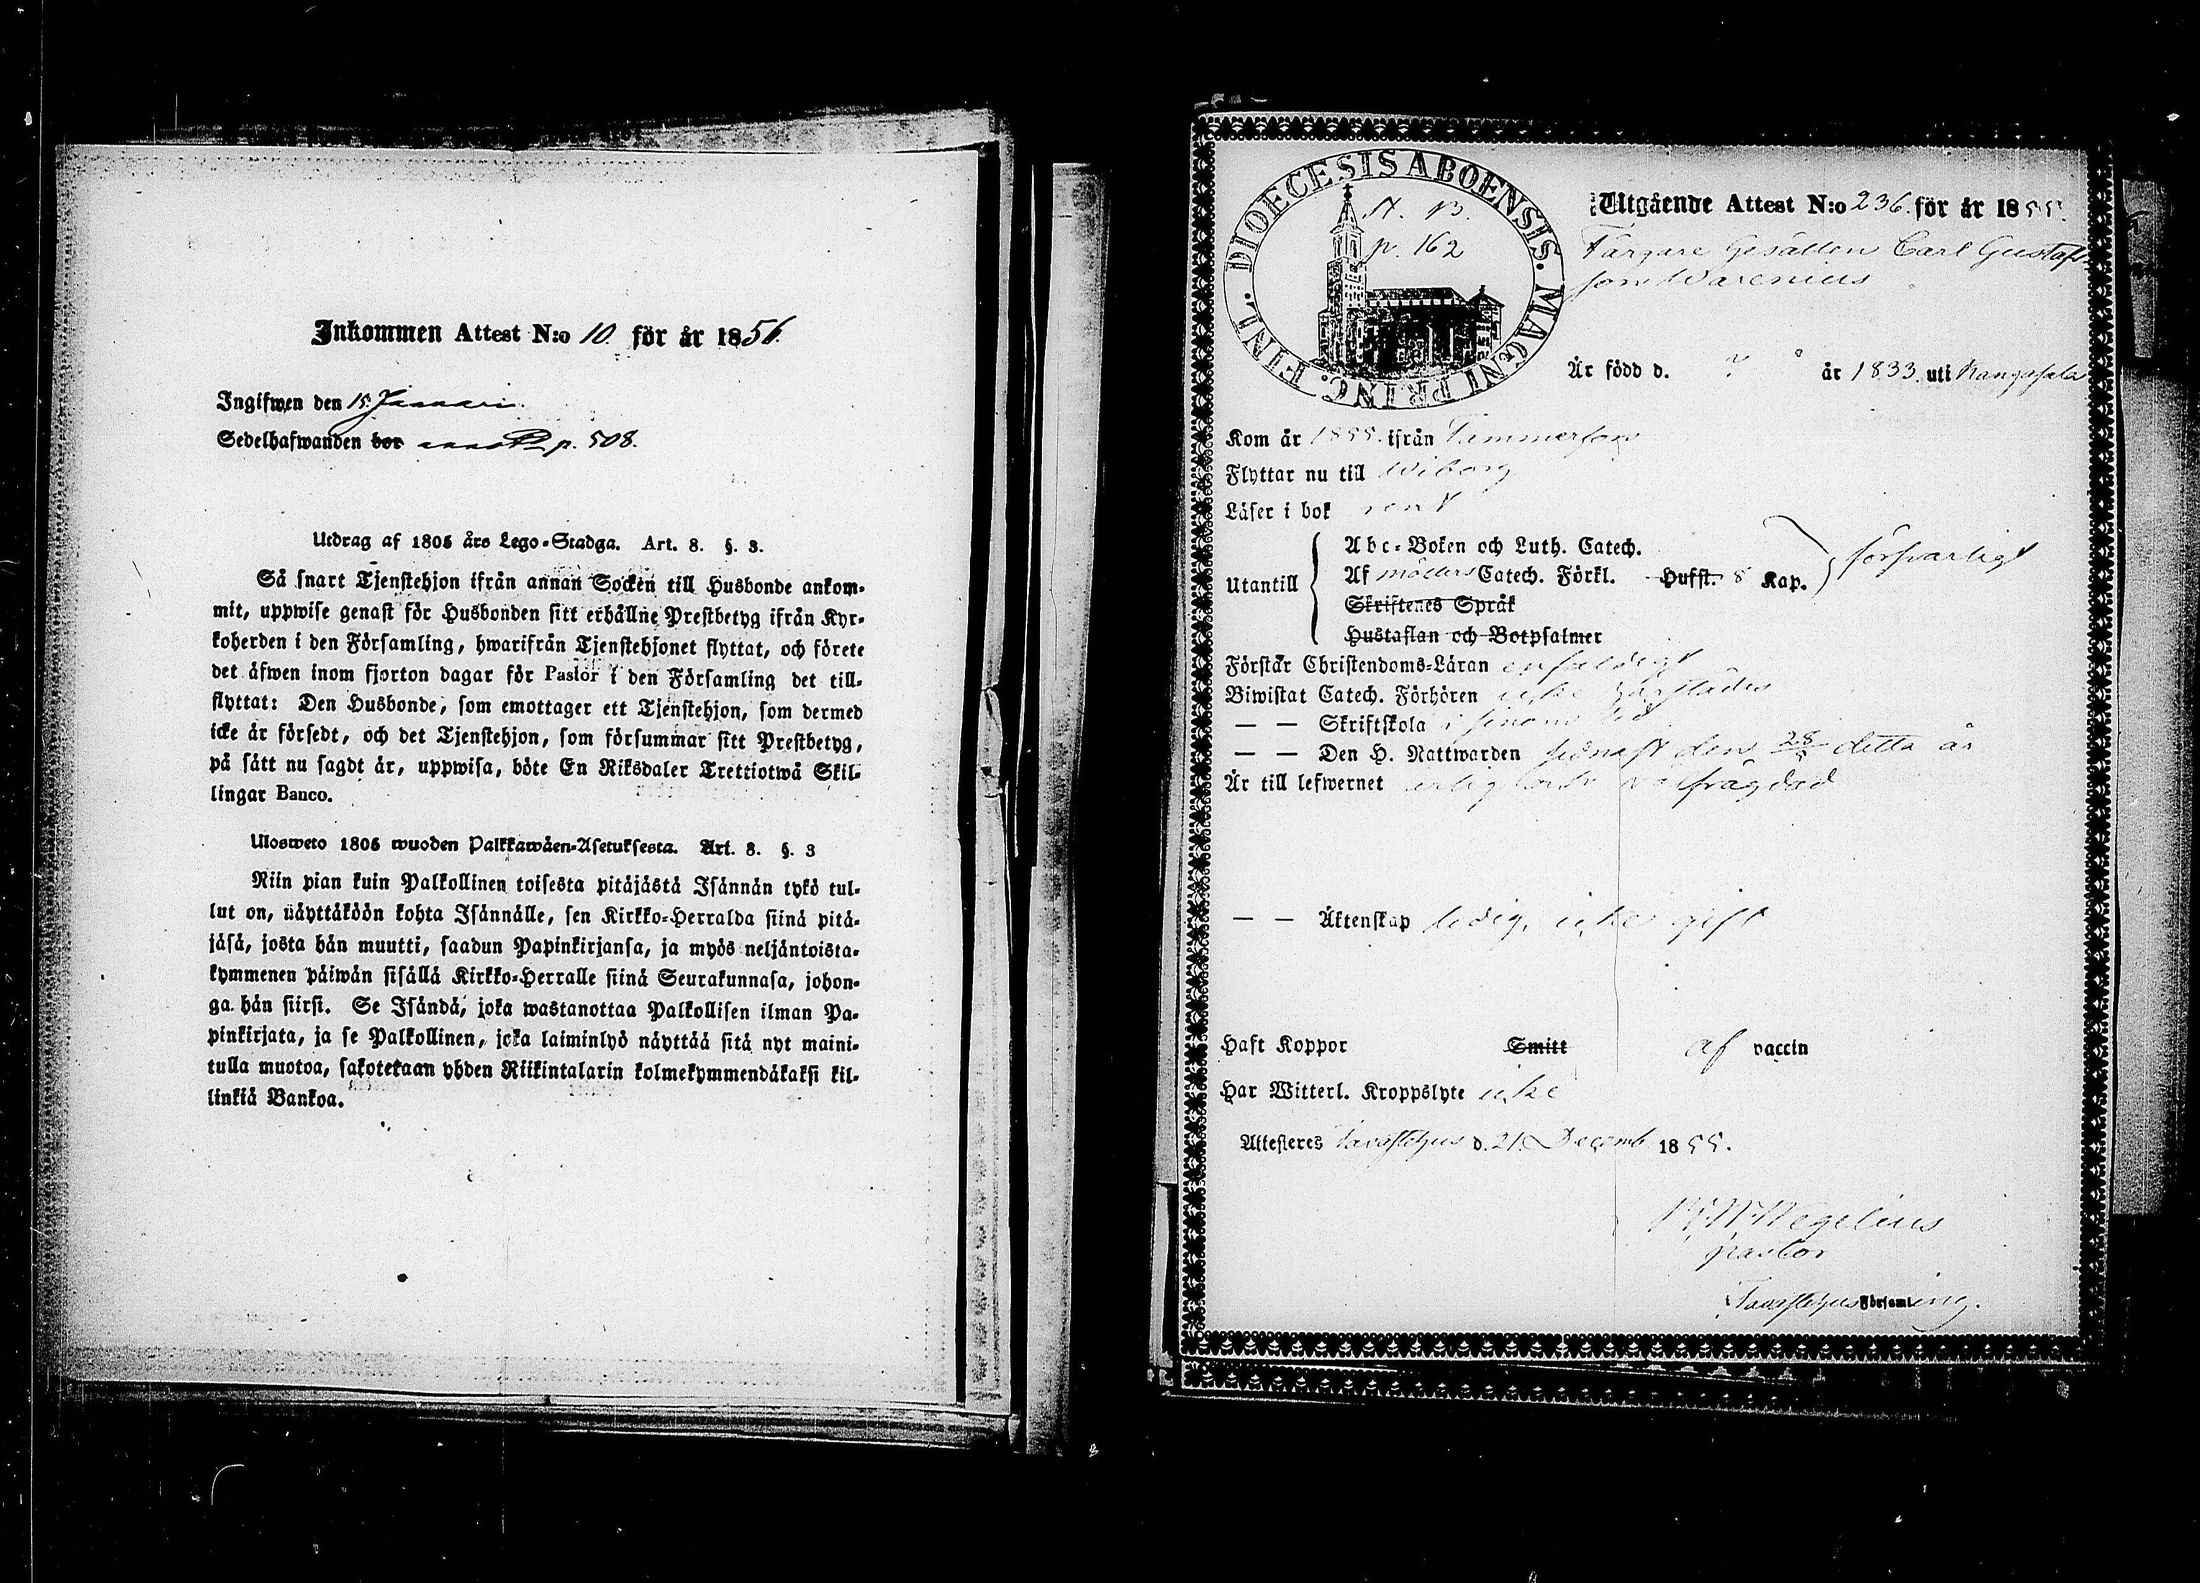 Inkommen Attest N:o 10. för år 1856.
Ingifwen den 15 Januari
Sedelhafwanden bor p. 508.
Utdrag af 1805 års Lego-Stadga. Art. 8. §. 3.
Så snart Tjenstehjon ifrån annan Socken till Husbonde ankom-
mit, uppwise genast för Husbonden sitt erhållne Prestbetyg ifrån Kyr-
koherden i den Församling, hwarifrån Tjenstehjonet flyttat, och förete
det äfwen inom fjorton dagar för Pastor i den Församling det till-
flyttat: Den Husbonde, som emottager ett Tjenstehjon, som dermed
icke är försedt, och det Tjenstehjon, som försummar sitt Prestbetyg,
på sätt nu sagdt är, uppwisa, böte En Riksdaler Trettiotwå Skil-
lingar Banco.
Ulosweto 1805 wuoden Palkkawäen-Asetuksesta. Art. 8. §. 3
Niin pian kuin Palkollinen toisesta pitäjästä Isännän tykö tul-
lut on, näyttäköön kohta Isännälle, sen Kirkko-Herralda siinä pitä-
jäsä, josta hän muutti, saadun Papinkirjansa, ja myös neljäntoista-
kymmenen päiwän sisällä Kirkko-Herralle siinä Seurakunnasa, johon-
ga hän siirsi. Se Isändä, joka wastanottaa Palkollisen ilman Pa-
pinkirjata, ja se Palkollinen, joka laiminlyö näyttää sitä nyt maini-
tulla muotoa, sakotetaan yhden Riikintalarin kolmekymmendäkaksi kil-
linkiä Bankoa.
DIOECESIS ABOENSIS. MAGNI PRINC. FINL.
St. B.
p. 162
Utgående Attest N:o 236. för år 1855.
Färgare Gesällen Carl Gustafs-
son Warenius
Är född d. ? år 1833. uti Kangasala
Kom år 1855. ifrån Tammerfors
Flyttar nu till Wiborg
Läser i bok rent
Utantill
Abc-Boken och Luth. Catech.
Af Möllers Catech. Förkl. Hufst. 8 Kap.
försvarligt
Skriftenes Språk
Hustaflan och Botpsalmer
Förstår Christendoms-Läran enfaldigt
Biwistat Catech. Förhören icke härstädes
— — Skriftskola i sinom tid
— — Den H. Nattwarden sednast den 28 detta år
Är till lefwernet ärlig och wälfrägdad
— — Äktenskap ledig, icke gift
Haft Koppor Smitt af vaccin
Har Witterl. Kroppslyte icke
Attesteres Tavastehus d. 21. Decemb 1855.
Wegelius
pastor
Tavastehus Församling.